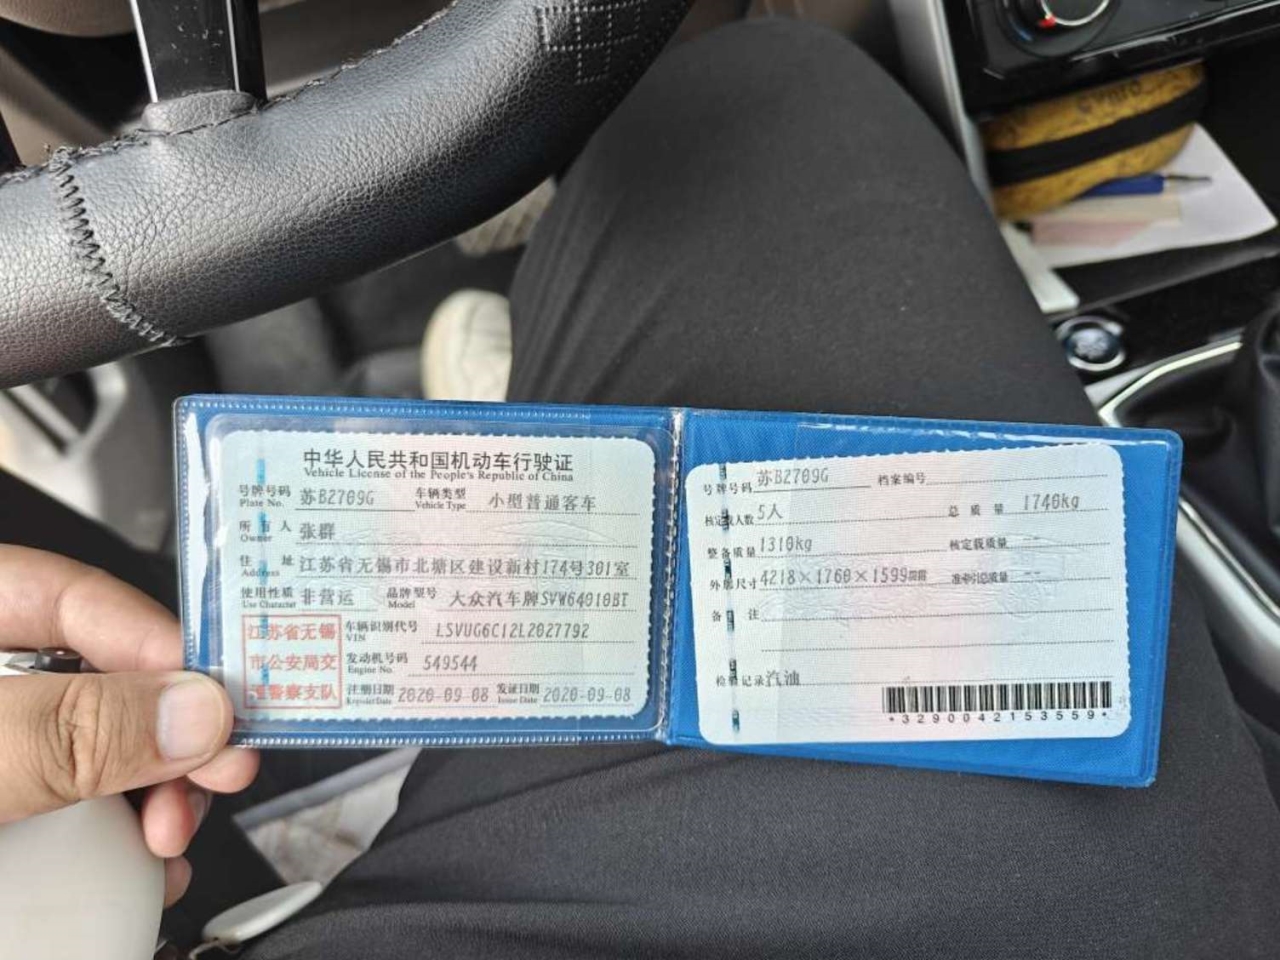 中华人民共和国机动车行驶证
Vehicle License of the People's Republic of China
号牌号码 苏B2709G 车辆类型 小型普通客车
Plate No. Vehicle Type
所有人 张群
Owner
住址 江苏省无锡市北塘区建设新村174号301室
Address
使用性质 非营运 品牌型号 大众汽车牌SVW6401BBT
Use Character Model
江苏省无锡
市公安局交
通警察支队
车辆识别代号 LSVUG6C12L2027792
VIN
发动机号码 549544
Engine No.
注册日期 2020-09-08 发证日期 2020-09-08
Register Date Issue Date
号牌号码 苏B2709G 档案编号
核定载人数 5人 总质量 1740kg
整备质量 1310kg 核定载质量 --
外廓尺寸 4218×1760×1599mm 准牵引总质量 --
备注
检验记录 汽油
*3290042153559*